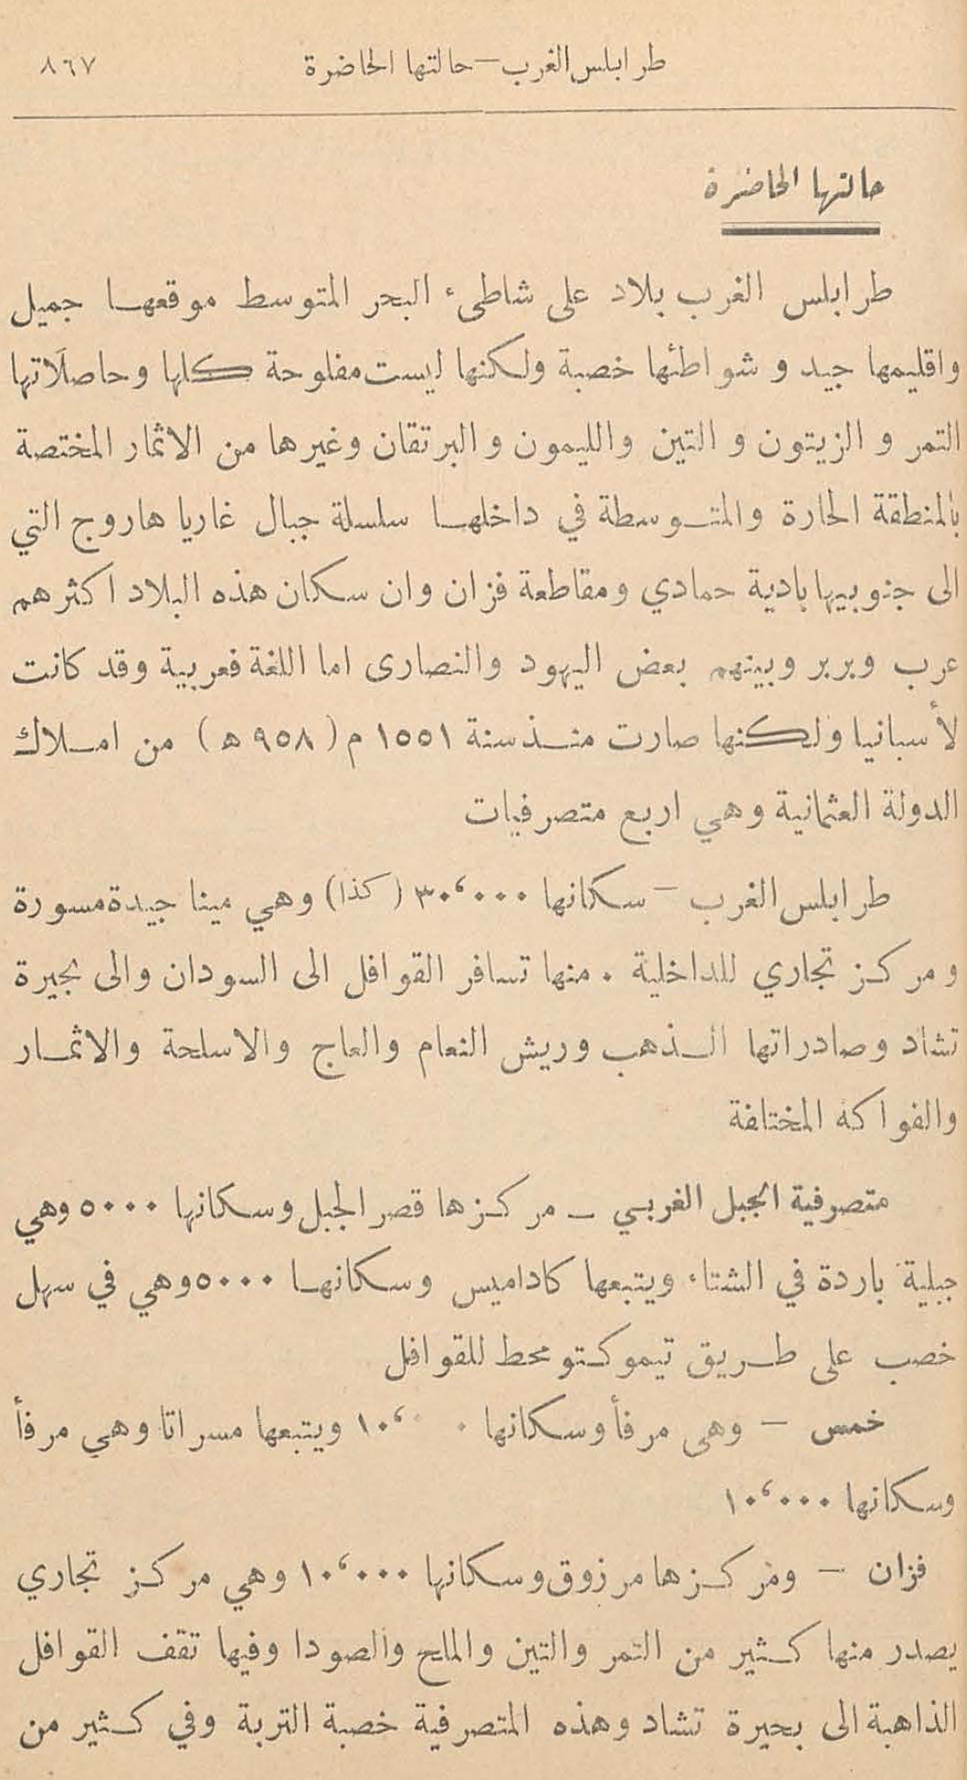 طرابلس الغرب — حالتها الحاضرة ٨٦٧
حالتها الحاضرة
طرابلس الغرب بلاد على شاطىء البحر المتوسط موقعها جميل
واقليمها جيد و شواطئها خصبة ولكنها ليست مفلوحة كلها وحاصلاتها
التمر و الزيتون و التين والليمون و البرتقان وغيرها من الاثمار المختصة
بالمنطقة الحارة والمتوسطة في داخلها سلسلة جبال غاريا هاروج التي
الى جنوبيها بادية حمادي ومقاطعة فزان وان سكان هذه البلاد اكثرهم
عرب وبربر وبينهم بعض اليهود والنصارى اما اللغة فعربية وقد كانت
لأسبانيا ولكنها صارت منذ سنة ١٥٥١ م ( ٩٥٨ ه ) من املاك
الدولة العثمانية وهي اربع متصرفيات
طرابلس الغرب — سكانها ٣٠،٠٠٠ ( كذا ) وهي مينا جيدة مسورة
ومركز تجاري للداخلية . منها تسافر القوافل الى السودان والى بحيرة
تشاد وصادراتها الذهب وريش النعام والعاج والاسلحة والاثمار
والفواكه المختلفة
متصرفية الجبل الغربي — مركزها قصر الجبل وسكانها ٥٠٠٠ وهي
جبلية باردة في الشتاء ويتبعها كاداميس وسكانها ٥٠٠٠ وهي في سهل
خصب على طريق تيموكتو محط للقوافل
خمس — وهي مرفأ وسكانها ١٠،٠٠٠ ويتبعها مسراتا وهي مرفأ
وسكانها ١٠،٠٠٠
فزان — ومركزها مرزوق وسكانها ١٠،٠٠٠ وهي مركز تجاري
يصدر منها كثير من التمر والتين والملح والصودا وفيها تقف القوافل
الذاهبة الى بحيرة تشاد وهذه المتصرفية خصبة التربة وفي كثير من